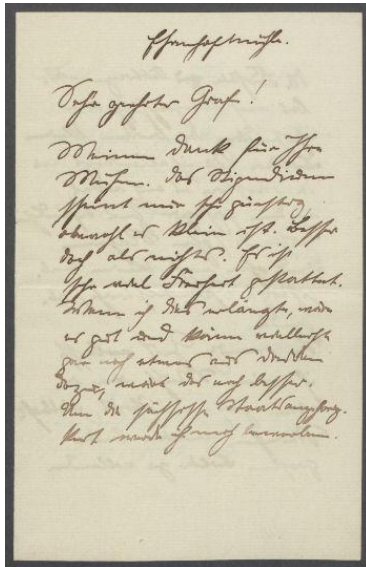 Sehr geehrter Graf!
Meinen Dank für Ihre
Mühen. Das Stipendium
scheint mir sehr günstig,
obwohl es klein ist. Besser
doch als nichts. Es ist
sehr viel Freiheit gestattet.
Wenn ich dies erlangte, wäre
es gut und käme vielleicht
gar noch etwas aus Dresden
dazu, wäre das noch besser.
Um die sächsische Staatsangehörig-
keit werde ich mich bewerben.